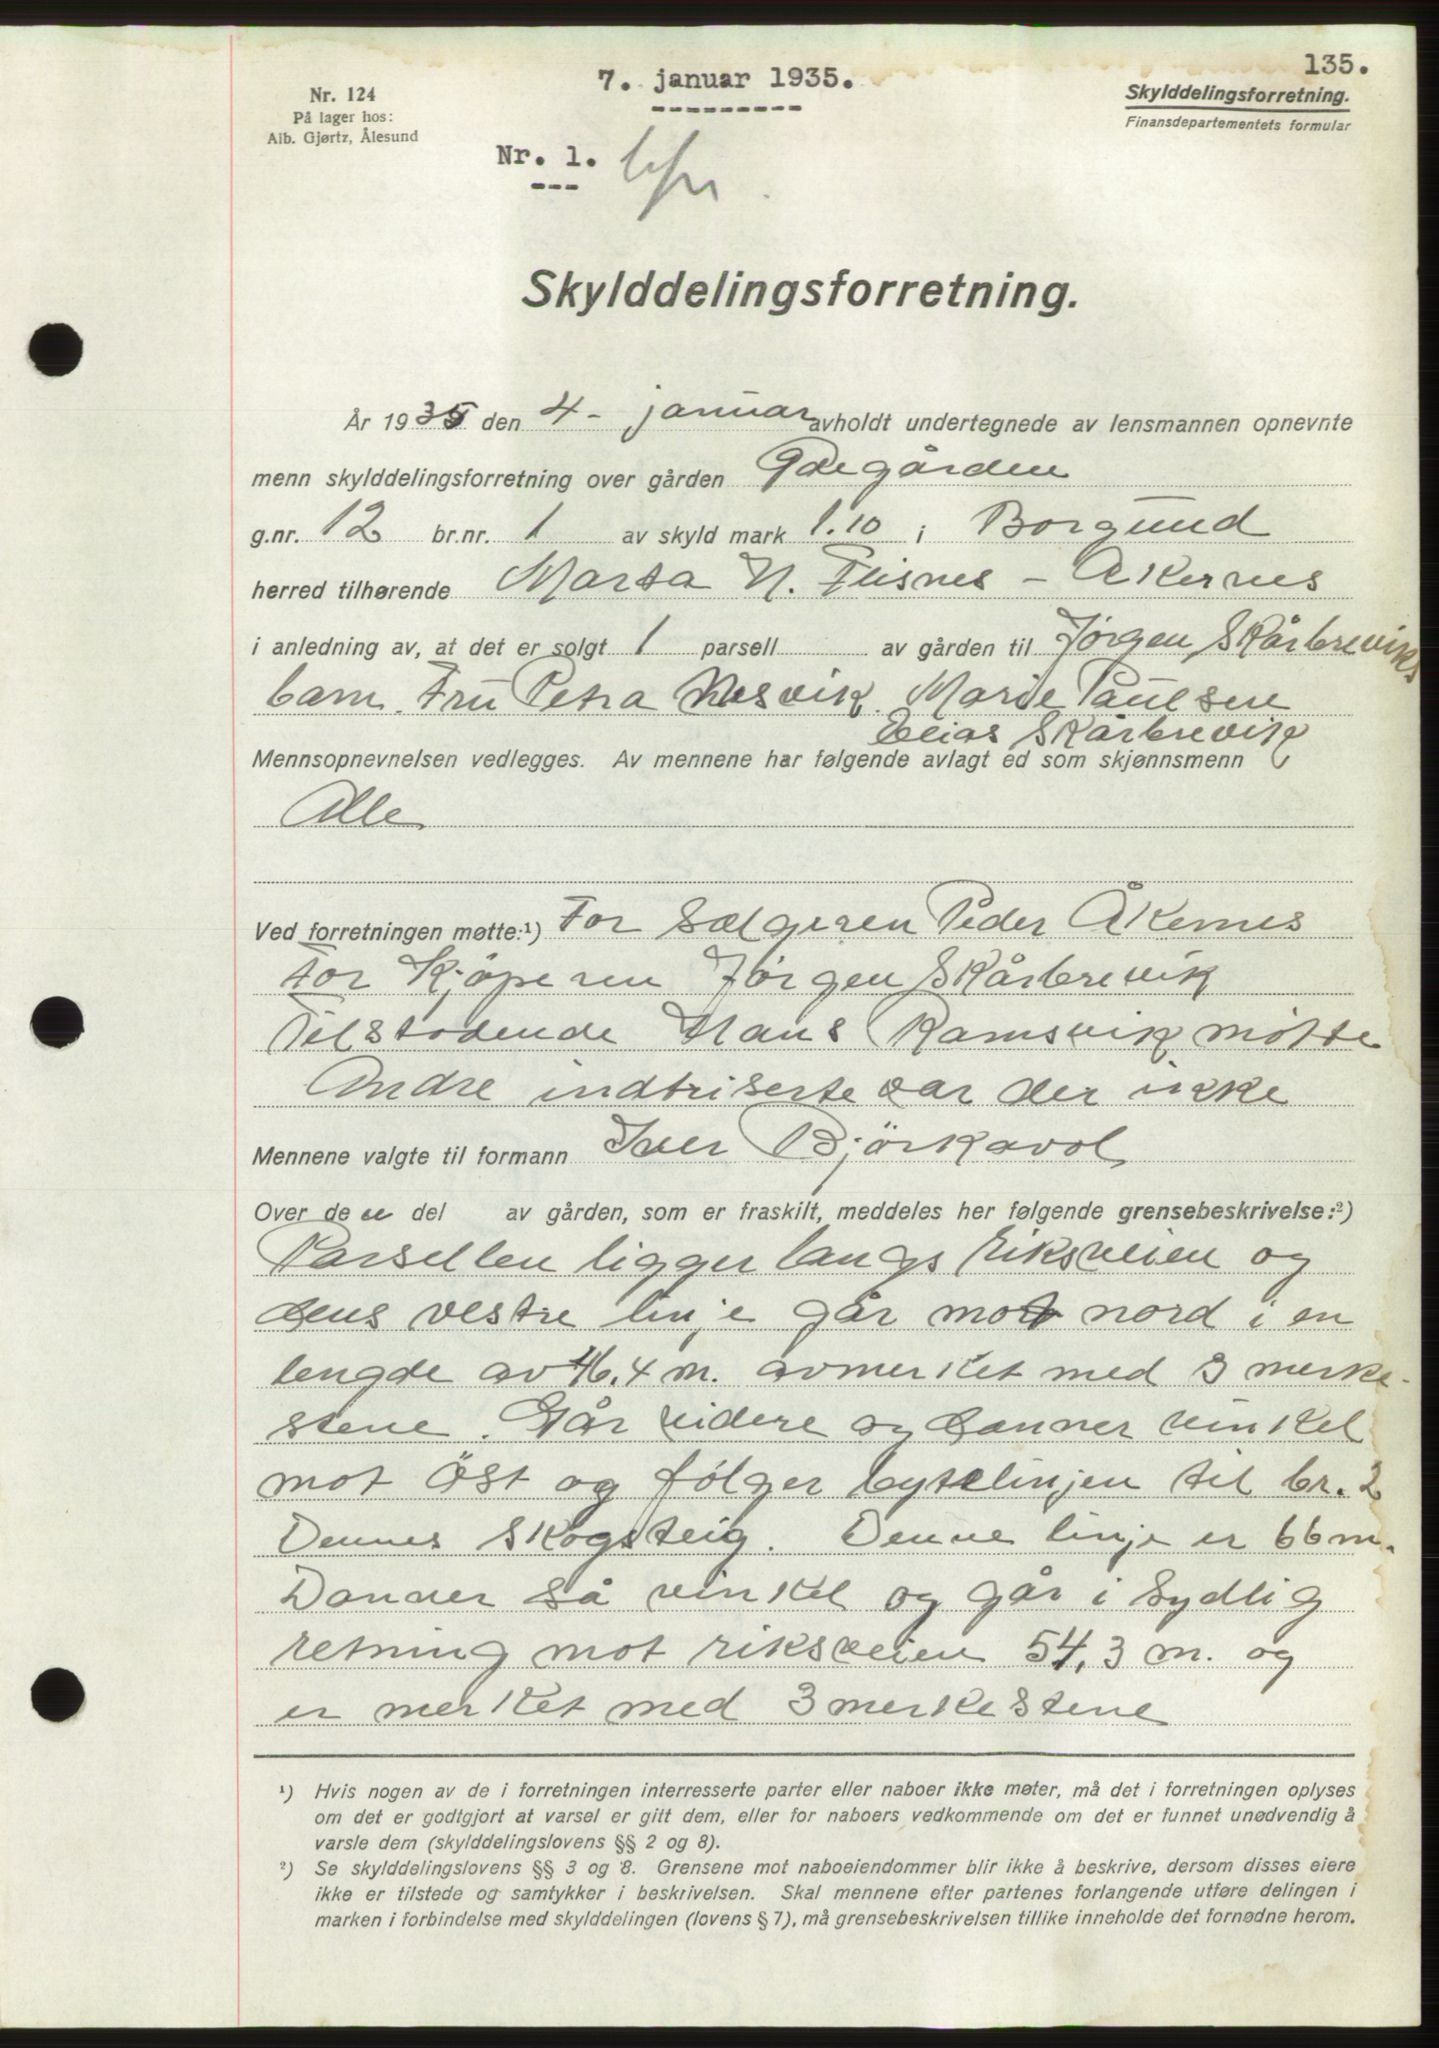 135.
7. januar 1935.
Nr. 124
På lager hos:
Alb. Gjørtz, Ålesund
Skylddelingsforretning.
Finansdepartementets formular
Nr. 1.
Skylddelingsforretning.
År 1935 den 4 - januar avholdt undertegnede av lensmannen opnevnte
menn skylddelingsforretning over gården Ødegården
g.nr. 12 br.nr. 1 av skyld mark 1.10 i Borgund
herred tilhørende Marta N. Flisnes - Akernes
i anledning av, at det er solgt 1 parsell av gården til Jørgen Skårbreviks
barn. Fru Petra Nesvik. Marie Paulsen
Elias Skårbrevik
Mennsopnevnelsen vedlegges. Av mennene har følgende avlagt ed som skjønnsmenn
Alle
Ved forretningen møtte:¹) For Sælgeren Peder Åkernes
For Kjöperen Jørgen Skårbrevik
Tilstodende Hans Ramsvik møtte
Andre indtriserte var der ikke
Mennene valgte til formann Iver Björkavol
Over de n del av gården, som er fraskilt, meddeles her følgende grensebeskrivelse:²)
Parsellen ligger langs riksveien og
dens vestre linje går mot nord i en
lengde av 46.4 m. avmerket med 3 merke-
stene. Går videre og danner vinkel
mot Öst og følger bytelinjen til br. 2
Dennes Skogsteig. Denne linje er 66 m.
Danner så vinkel og går i Sydlig
retning mot riksveien 54,3 m. og
er merket med 3 merkestene
¹) Hvis nogen av de i forretningen interresserte parter eller naboer ikke møter, må det i forretningen oplyses
om det er godtgjort at varsel er gitt dem, eller for naboers vedkommende om det er funnet unødvendig å
varsle dem (skylddelingslovens §§ 2 og 8).
²) Se skylddelingslovens §§ 3 og 8. Grensene mot naboeiendommer blir ikke å beskrive, dersom disses eiere
ikke er tilstede og samtykker i beskrivelsen. Skal mennene efter partenes forlangende utføre delingen i
marken i forbindelse med skylddelingen (lovens § 7), må grensebeskrivelsen tillike inneholde det fornødne herom.